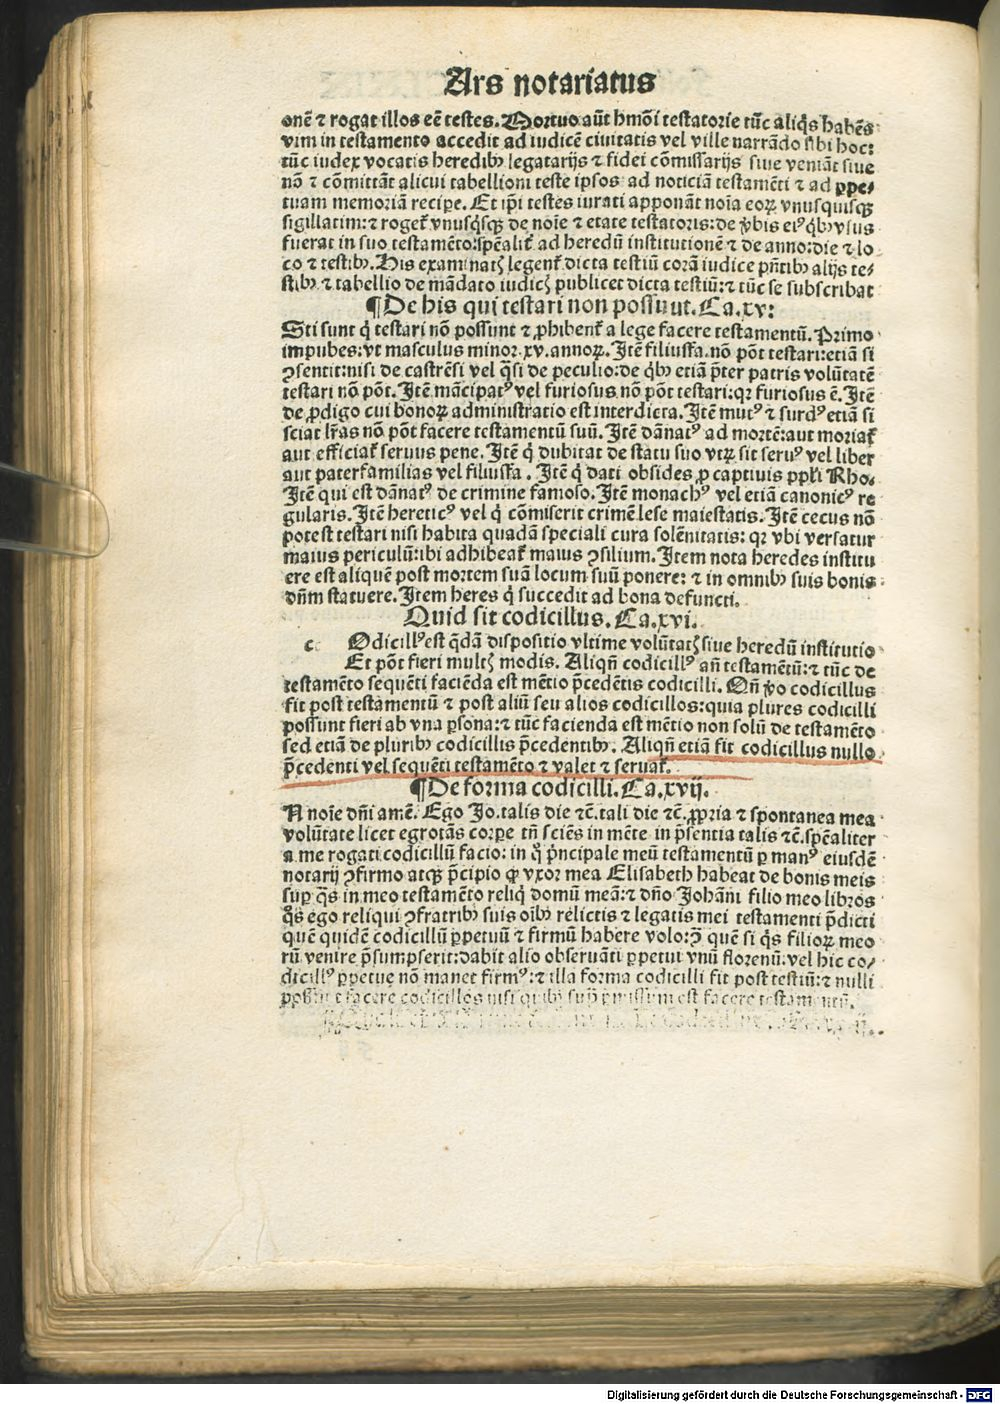 Ars notariatus
onē ⁊ rogat illos eē testes. Mortuo aūt hmōi testatorie tūc aliqͥs habēs
vim in testamento accedit ad iudicē ciuitatis vel ville narrādo sibi hoc:
tūc iudex vocatis heredibꝫ legatarijs ⁊ fidei cōmissarijs siue veniāt siue
nō ⁊ cōmittāt alicui tabellioni teste ipsos ad noticiā testamēti ⁊ ad ꝑpe/
tuam memoriā recipe. Et ip̄i testes iurati apponāt noīa eoꝝ vnusquisqꝫ
sigillatim: ⁊ roget̄ vnusqͥsqꝫ de noīe ⁊ etate testatoris: de v̄bis eiꝰ qͥbꝫ vsus
fuerat in suo testamēto: sp̄ealit̄ ad heredū institutionē ⁊ de anno: die ⁊ lo
co ⁊ testibꝫ. His examinatꝭ legent̄ dicta testiū corā iudice pn̄tibꝫ alijs te/
stibꝫ ⁊ tabellio de mādato iudicꝭ publicet dicta testiū: ⁊ tūc se subscribat
¶ De his qui testari non possunt. Ca. xv:
Sti sunt qͥ testari nō possunt ⁊ ꝓhibent̄ a lege facere testamentū. Primo
impubes: vt masculus minor. xv. annoꝝ. Itē filiusfa. nō pōt testari: etiā si
ꝯsentit: nisi de castrēsi vel qͣsi de peculio: de qͥbꝫ etiā p̄ter patris volūtatē
testari nō pōt. Itē māncipatꝰ vel furiosus nō pōt testari: qꝛ furiosus ē. Itē
de ꝓdigo cui bonoꝝ administratio est interdicta. Itē mutꝰ ⁊ surdꝰ etiā si
sciat lr̄as nō pōt facere testamentū suū. Itē dānatꝰ ad mortē: aut moriat̄
aut efficiat̄ seruus pene. Itē qͥ dubitat de statu suo vtꝝ sit seruꝰ vel liber
aut paterfamilias vel filiusfa. Itē qͥ dati obsides ꝓ captiuis ppl̄i Rho.
Itē qui est dānatꝰ de crimine famoso. Itē monachꝰ vel etiā canonicꝰ re
gularis. Itē hereticꝰ vel qͥ cōmiserit crimē lese maiestatis. Itē cecus nō
potest testari nisi habita quadā speciali cura solēnitatis: qꝛ vbi versatur
maius periculū: ibi adhibeat̄ maius ꝯsilium. Item nota heredes institu
ere est aliquē post mortem suā locum suū ponere: ⁊ in omnibꝫ suis bonis
dn̄m statuere. Item heres qͥ succedit ad bona defuncti.
Quid sit codicillus. Ca. xvi.
c Odicillꝰ est qͣdā dispositio vltime volūtatꝭ siue heredū institutio
Et pōt fieri multꝭ modis. Aliqn̄ codicillꝰ an̄ testamētū: ⁊ tūc de
testamēto sequēti faciēda est mētio p̄cedētis codicilli. Qn̄ v̄o codicillus
fit post testamentū ⁊ post aliū seu alios codicillos: quia plures codicilli
possunt fieri ab vna ꝑsona: ⁊ tūc facienda est mētio non solū de testamēto
sed etiā de pluribꝫ codicillis p̄cedentibꝫ. Aliqn̄ etiā fit codicillus nullo
p̄cedenti vel sequēti testamēto ⁊ valet ⁊ seruat̄.
¶ De forma codicilli. Ca. xvij.
N noīe dn̄i amē. Ego Jo. talis die ⁊c̄. tali die ⁊c̄. ꝓpria ⁊ spontanea mea
volūtate licet egrotās corꝑe tn̄ sciēs in mēte in p̄sentia talis ⁊c̄. sp̄ealiter
a me rogati codicillū facio: in qͦ pͥncipale meū testamentū ꝑ manꝰ eiusdē
notarij ꝯfirmo atqꝫ p̄cipio qꝙ vxor mea Elisabeth habeat de bonis meis
suꝑ qͣs in meo testamēto reliqͥ domū meā: ⁊ dn̄o Johāni filio meo libros
qͦs ego reliqui ꝯfratribꝫ suis oībꝫ relictis ⁊ legatis mei testamenti p̄dicti
quē quidē codicillū ꝑpetuū ⁊ firmū habere volo: ꝯ quē si qͥs filioꝝ meo
rū venire p̄sumpserit: dabit alio obseruāti ꝑpetui vnū florenū: vel hic co/
dicillꝰ ꝑpetue nō manet firmꝰ: ⁊ illa forma codicilli fit post testiū: ⁊ nulli
facere codicillos nisi quibꝫ est facere testamentū.
Digitalisierung gefördert durch die Deutsche Forschungsgemeinschaft - DFG